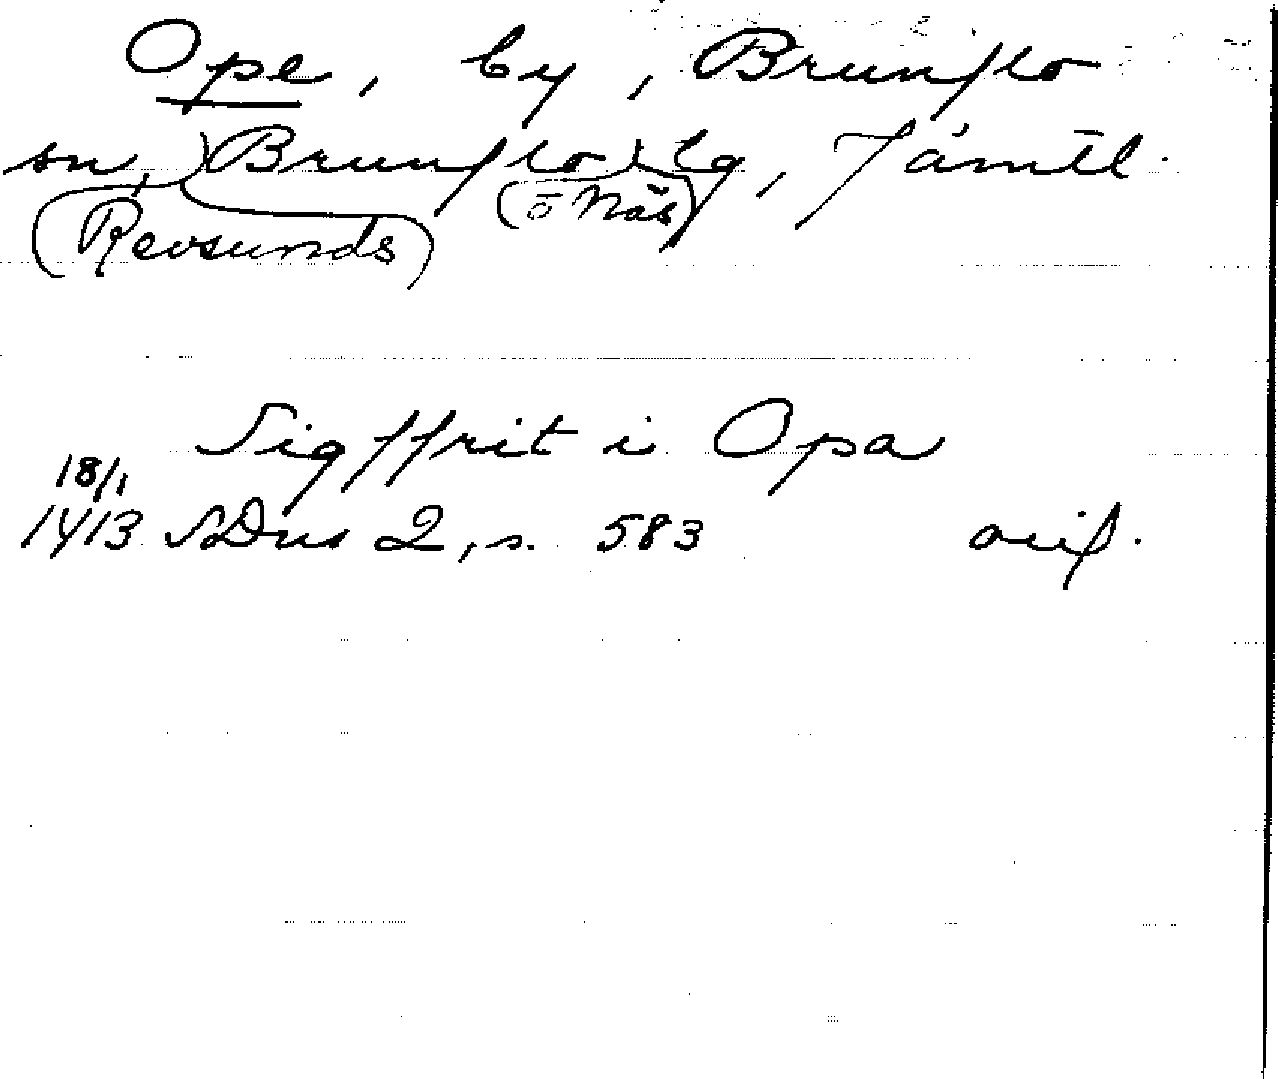 Ope, by, Brunflo
sn, Brunflo tg, Jämtl.
(Revsunds) (o Näs)
Sigffrit i Opa
18/1
1413 SDns 2, s. 583 avif.